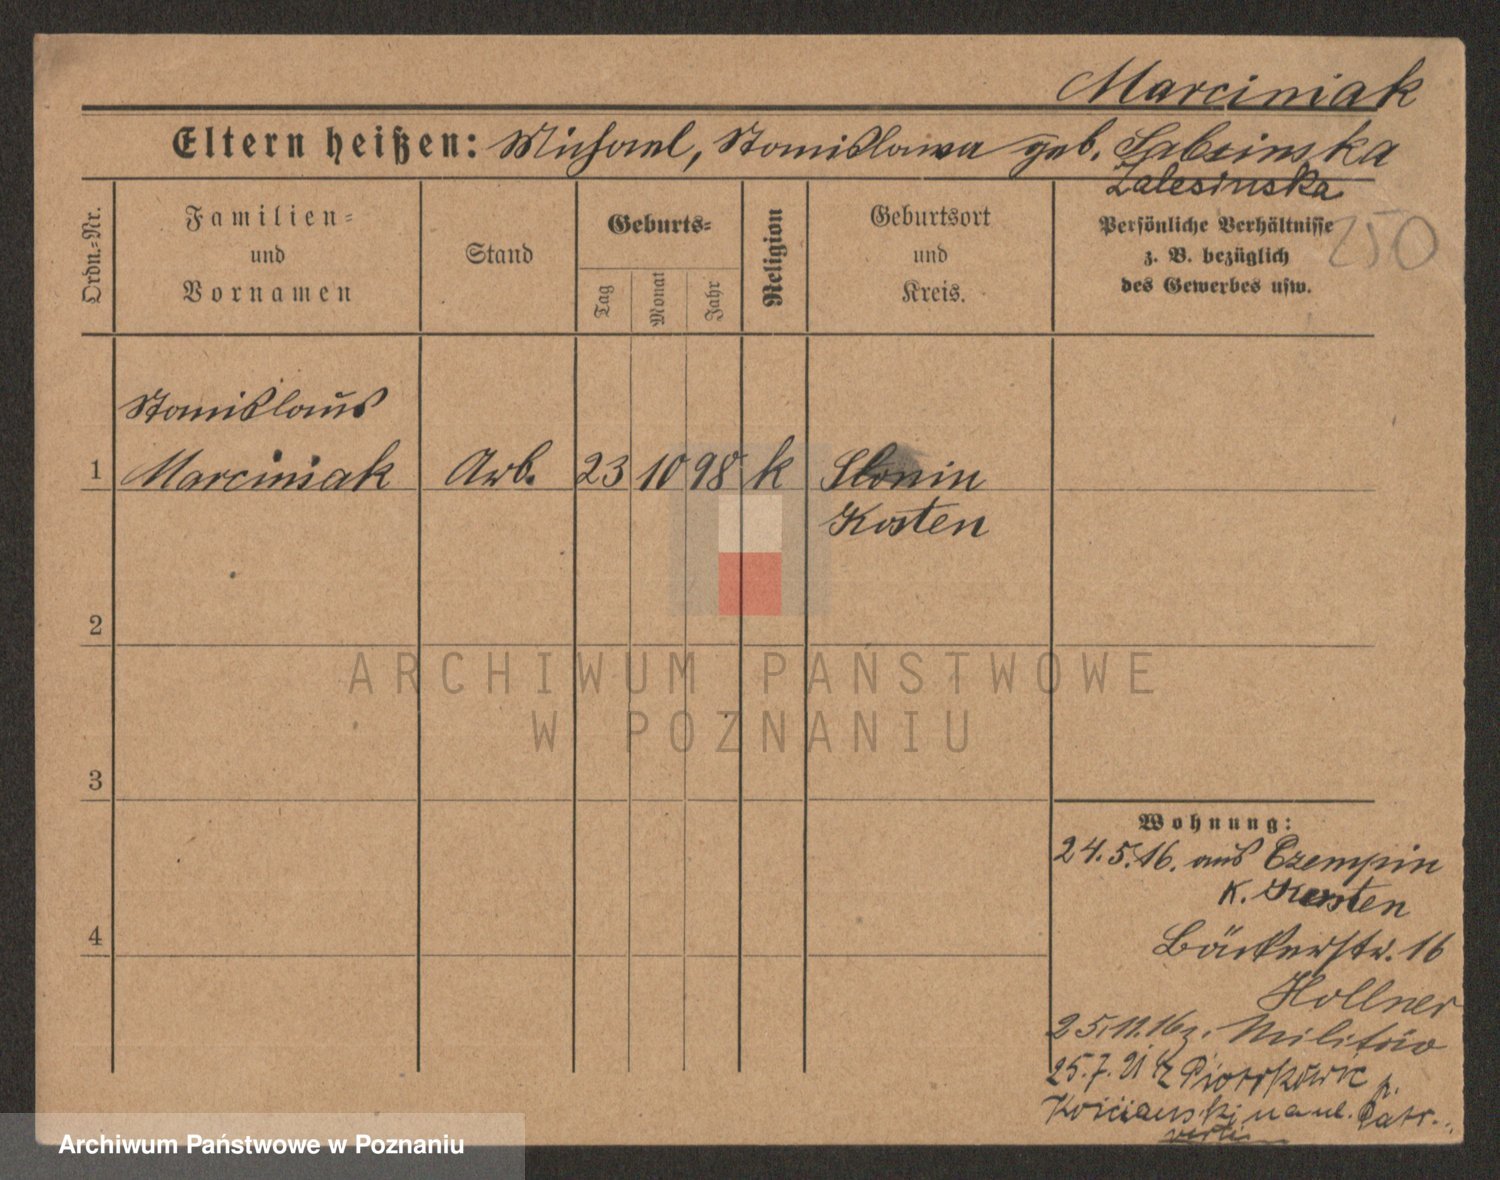 Marciniak
Eltern heißen: Michael, Stanislawa geb. Salsinska
Zalesinska
Ordn.=Nr.
Familien=
und
Vornamen
Stand
Geburts=
Tag
Monat
Jahr
Religion
Geburtsort
und
Kreis.
Persönliche Verhältnisse
z. B. bezüglich
des Gewerbes usw.
250
Stanislaus
1 Marciniak Arb. 23 10 98 k Slonin
Kosten
2
3
4
ARCHIWUM PAŃSTWOWE
W POZNANIU
Wohnung:
24.5.16. aus Czempin
K. Kosten
Bäckerstr. 16
Hollner
25.11.16 z. Militär
25.7.21 z Piotrkowic p.
Kościański na ul. Patr..
verte
Archiwum Państwowe w Poznaniu